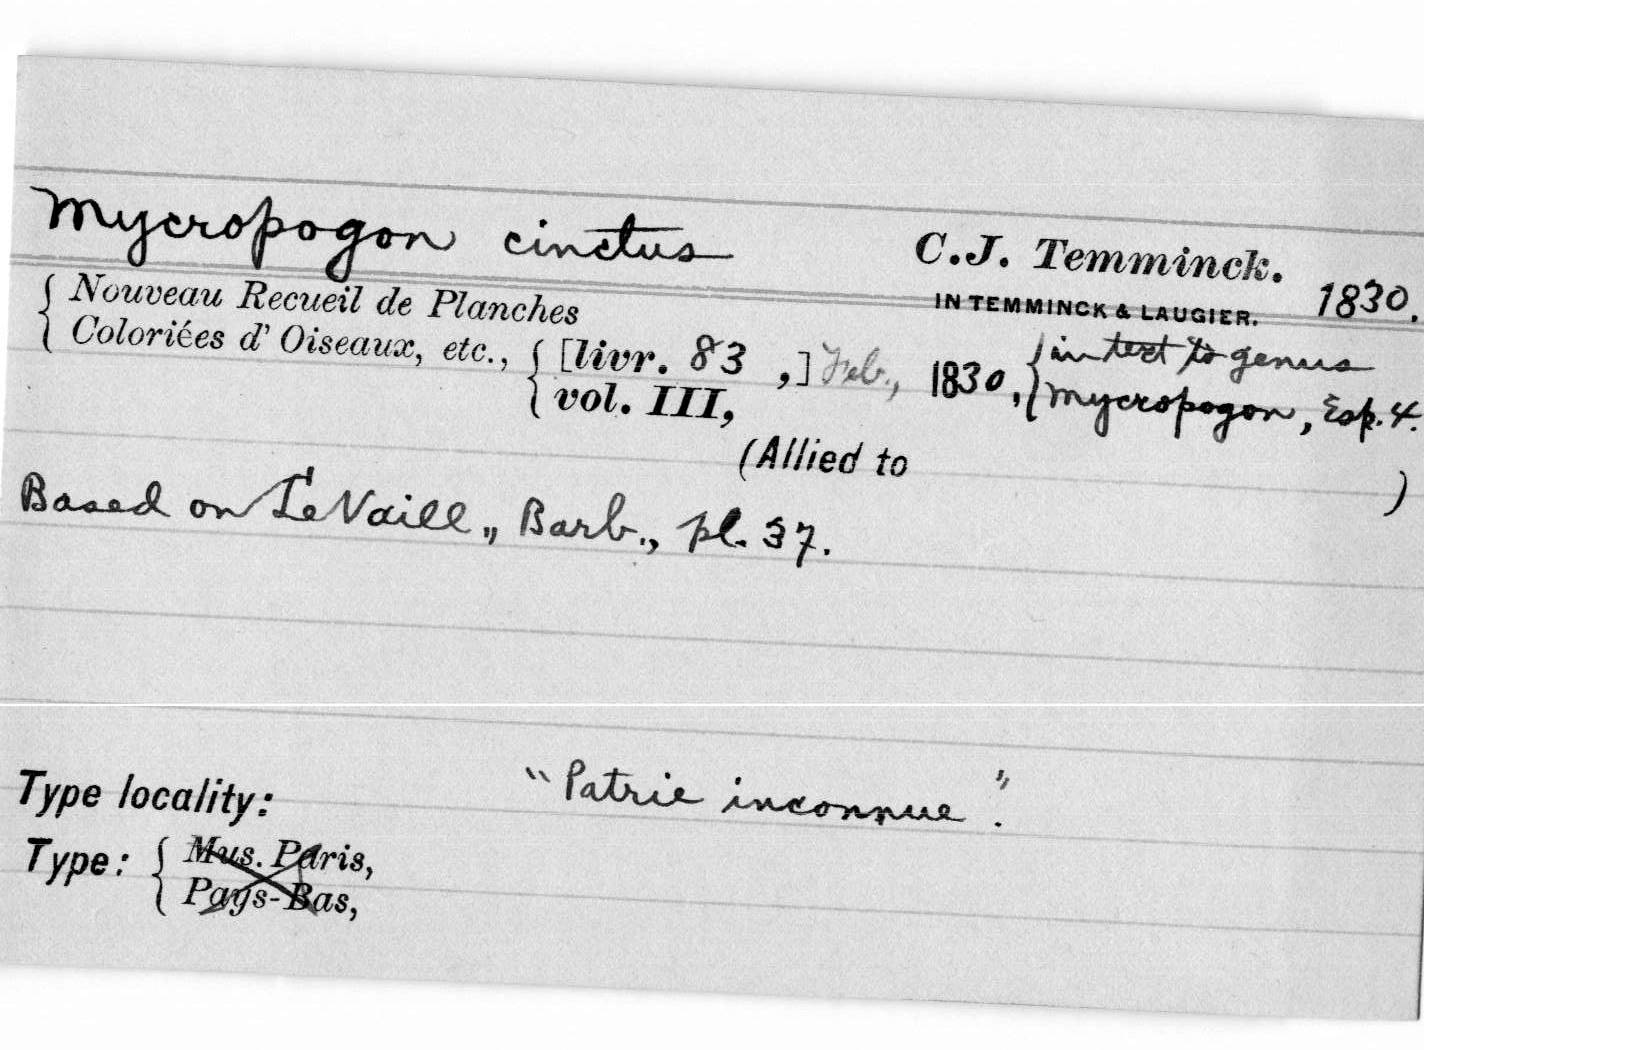 Mycropogon cinctus C.J. Temminck. 1830.
IN TEMMINCK & LAUGIER.
{ Nouveau Recueil de Planches
Coloriées d' Oiseaux, etc., { [livr. 83 ,] Feb., 1830, { in text to genus
vol. III, Mycropogon, Esp. 4.
(Allied to )
Based on LeVaill., Barb., pl. 37.
Type locality: "Patrie inconnue".
Type: { Mus. Paris,
Pays-Bas,